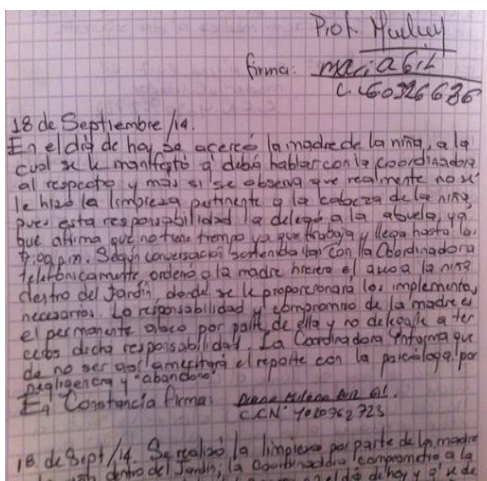 Prof.
firma: maria Gil
C.C 60326686
18 de Septiembre/14.
En el día de hoy se acercó la madre de la niña, a la
cual se le manifestó q' debía hablar con la Coordinadora
al respecto y más si se observa que realmente no se
le hizo la limpieza pertinente a la cabeza de la niña,
pues esta responsabilidad la delegó a la abuela, ya
que afirma que no tiene tiempo ya que trabaja y llega hasta las
p.m. Según conversación sostenida hoy con la Coordinadora
telefónicamente, ordenó a la madre hiciera el aseo a la niña
dentro del Jardín, donde se le proporcionará los implementos
necesarios. La responsabilidad y compromiso de la madre es
el permanente aseo por parte de ella y no delegarle a ter
ceros dicha responsabilidad. La Coordinadora informa que
de no ser así ameritará el reporte con la psicóloga por
negligencia y "abandono".
En Constancia firma:
C.C N°
18 de Sept/14. Se realizó la limpieza por parte de la madre
dentro del Jardín; la coordinadora comprometió a la
el día de hoy y q' se de